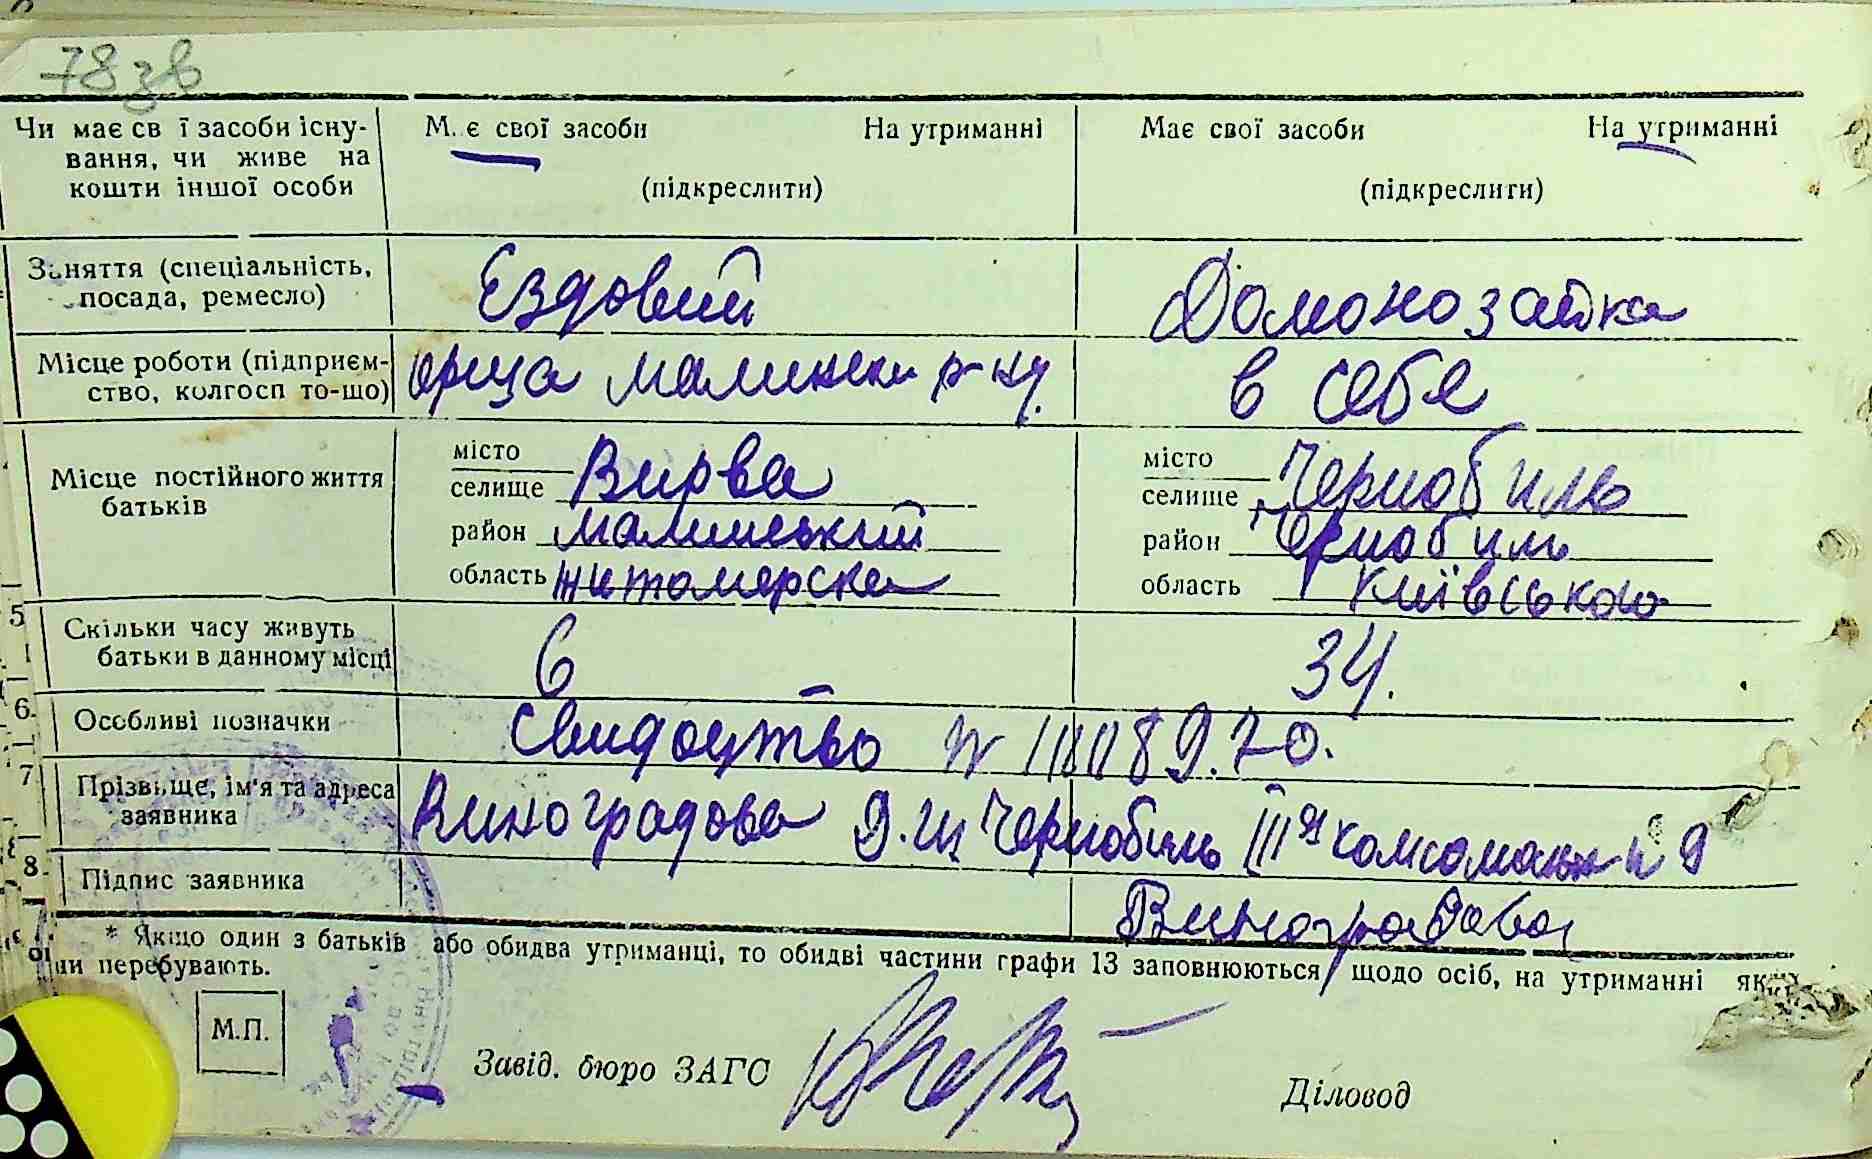 78зв
Чи має св ї засоби існу-
вання, чи живе на
кошти іншої особи
М. є свої засоби На утриманні
(підкреслити)
Має свої засоби На утриманні
(підкреслити)
Заняття (спеціальність,
посада, ремесло)
Ездовий
Домохозайка
Місце роботи (підприєм-
ство, колгосп то-що)
малинськ р-ну.
в себе
Місце постійного життя
батьків
місто
селище Вирва
район малинський
область житомирска
місто
селище Чернобиль
район Чернобиль
область Київською
5
Скільки часу живуть
батьки в данному місці
6
34.
6.
Особливі позначки
Свидоцтво
7
Прізвище, ім'я та адреса
заявника
Виноградова Чернобиль комсомольск 9
8.
Підпис заявника
Виноградова
* Якщо один з батьків або обидва утриманці, то обидві частини графи 13 заповнюються щодо осіб, на утриманні яких
перебувають.
М.П.
Завід. бюро ЗАГС
Діловод